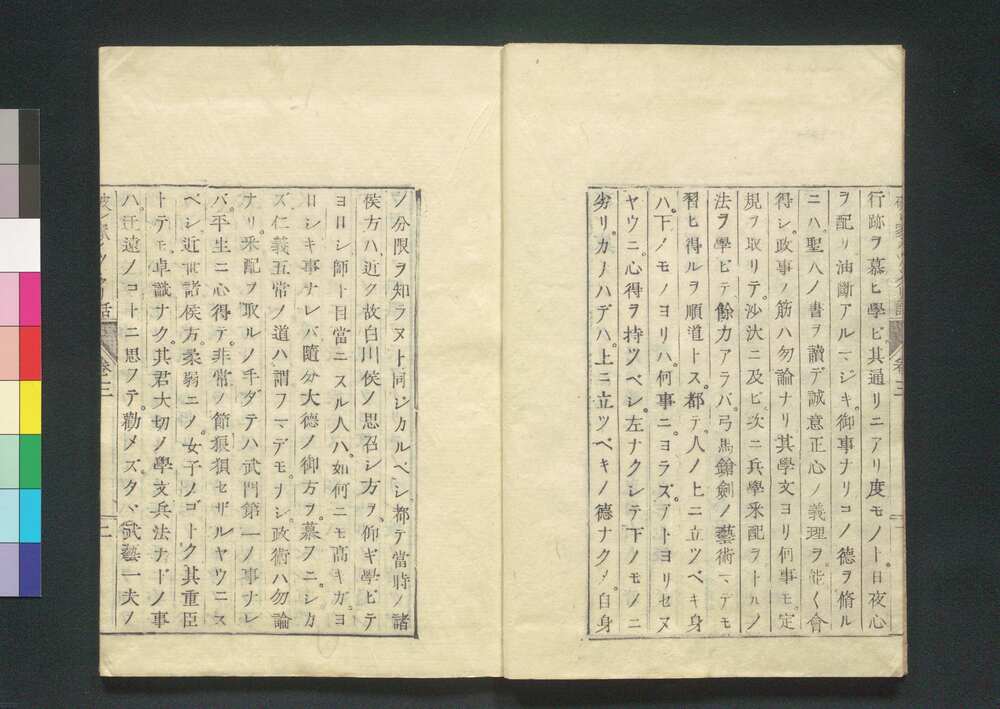 行跡ヲ慕ヒ學ビ其通リニアリ度モノト。日夜心
ヲ配リ油斷アルマジキ。御事ナリコノ德ヲ脩ル
ニハ。聖人ノ書ヲ讀デ誠意正心ノ義理ヲ。能く會
得シ。政事ノ筋ハ勿論ナリ其學文ヨリ何事モ。定
規ヲ取リテ。沙汰ニ及ビ。次ニ兵學釆配ヲトルノ
法ヲ學ビテ餘力アラバ。弓馬鎗劍ノ藝術マデモ
習ヒ得ルヲ順道トス。都テ。人ノ上ニ立ツベキ身
ハ。下ノモノヨリハ。何事ニヨラズ。アトヨリセヌ
ヤウニ。心得ヲ持ツベシ。左ナクシテ下ノモノニ
劣リ。カノハデハ。上ニ立ツベキノ德ナクメ。自身
ノ分限ヲ知ラヌト同ジカルベシ。都テ當時ノ諸
侯方ハ。近ク故白川侯ノ思召シ方ヲ。仰ギ學ビテ
ヨロシ師ト目當ニスル人ハ。如何ニモ高キガ。ヨ
ロシキ事ナレバ隨分大德ノ御方ヲ。慕フニ。シカ
ズ仁義五常ノ道ハ謂フマデモ。ナシ。政術ハ勿論
ナリ。釆配ヲ取ルノ手ダテハ武門第一ノ事ナレ
バ。平生ニ心得テ。非常ノ節狼狽セザルヤウニス
ベシ近世諸侯方。柔弱ニメ。女子ノゴトク其重臣
トテモ。卓識ナク。其君大切ノ學文兵法ナドノ事
ハ。迂遠ノコトニ思フテ。勸メズタヾ武藝一夫ノ
卷三
二